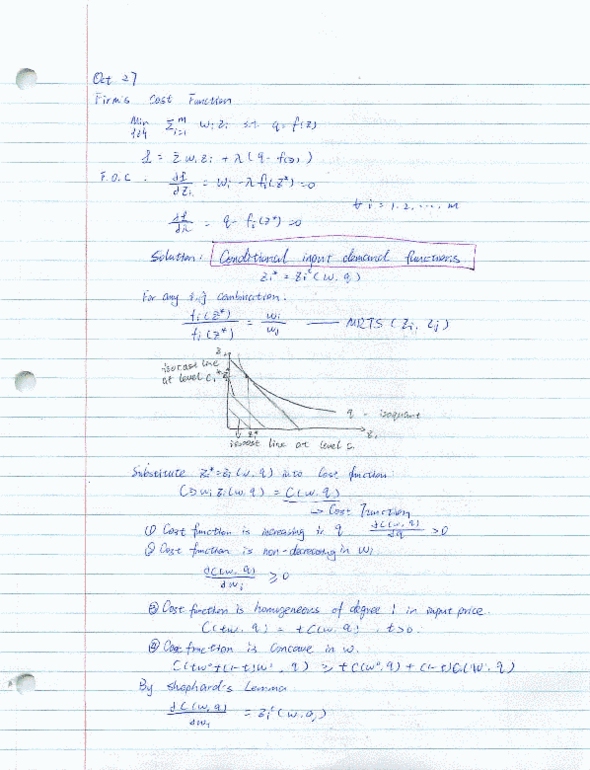 Oct 27
Firm's Cost Function
Min {zi} Σ_{i=1}^{m} wi zi s.t. q = f(z)
L = Σ wi zi + λ(q - f(z))
F.O.C. dL/dzi = wi - λ fi(z*) = 0
∀ i = 1. 2. ..... m
dL/dλ = q - fi(z*) = 0
Solution: Conditional input demand functions
zi* = zi^c (w, q)
For any i.j combination:
fi(z*)/fj(z*) = wi/wj —— MRTS (zi, zj)
isocost line
at level c
q - isoquant
z1
isocost line at level c
Substitute zi* = zi(w.q) into Cost function:
wi zi(w.q) = C(w.q)
→ Cost Function
① Cost function is increasing in q dC(w.q)/dq > 0
② Cost function is non-decreasing in wi
dC(w.q)/dwi ≥ 0
③ Cost function is homogeneous of degree 1 in input price.
C(tw, q) = tC(w.q) , t>0.
④ Cost function is concave in w.
C(tw°+(1-t)w', q) ≥ tC(w°,q) + (1-t)C(w',q)
By shephard's Lemma
dC(w,q)/dwi = zi^c(w.q)